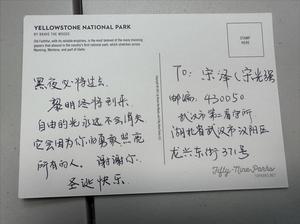 YELLOWSTONE NATIONAL PARK
BY BRAVE THE WOODS
Old Faithful, with its reliable eruptions, is the most beloved of the many stunning
geysers that abound in the country's first national park, which stretches across
Wyoming, Montana, and part of Idaho.
STAMP
HERE
黑夜必将过去
黎明终将到来
自由的光永远不会消失
它会因为你的勇敢照亮
所有的人。谢谢你
圣诞快乐
To: 宋泽(宋光强)
邮编: 430050
武汉市第二看守所
湖北省武汉市汉阳区
龙兴东街371号
Fifty-Nine Parks